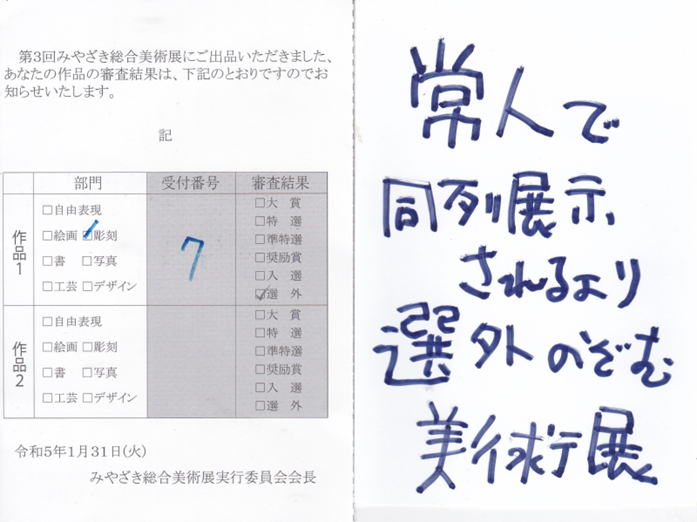 第3回みやざき総合美術展にご出品いただきました、
あなたの作品の審査結果は、下記のとおりですのでお
知らせいたします。
記
部門 受付番号 審査結果
作品1
□自由表現
□絵画 ☑彫刻
□書 □写真
□工芸 □デザイン
7
□大 賞
□特 選
□準特選
□奨励賞
□入 選
☑選 外
作品2
□自由表現
□絵画 □彫刻
□書 □写真
□工芸 □デザイン
□大 賞
□特 選
□準特選
□奨励賞
□入 選
□選 外
令和5年1月31日(火)
みやざき総合美術展実行委員会会長
常人で
同列展示
されるより
選外のぞむ
美術展